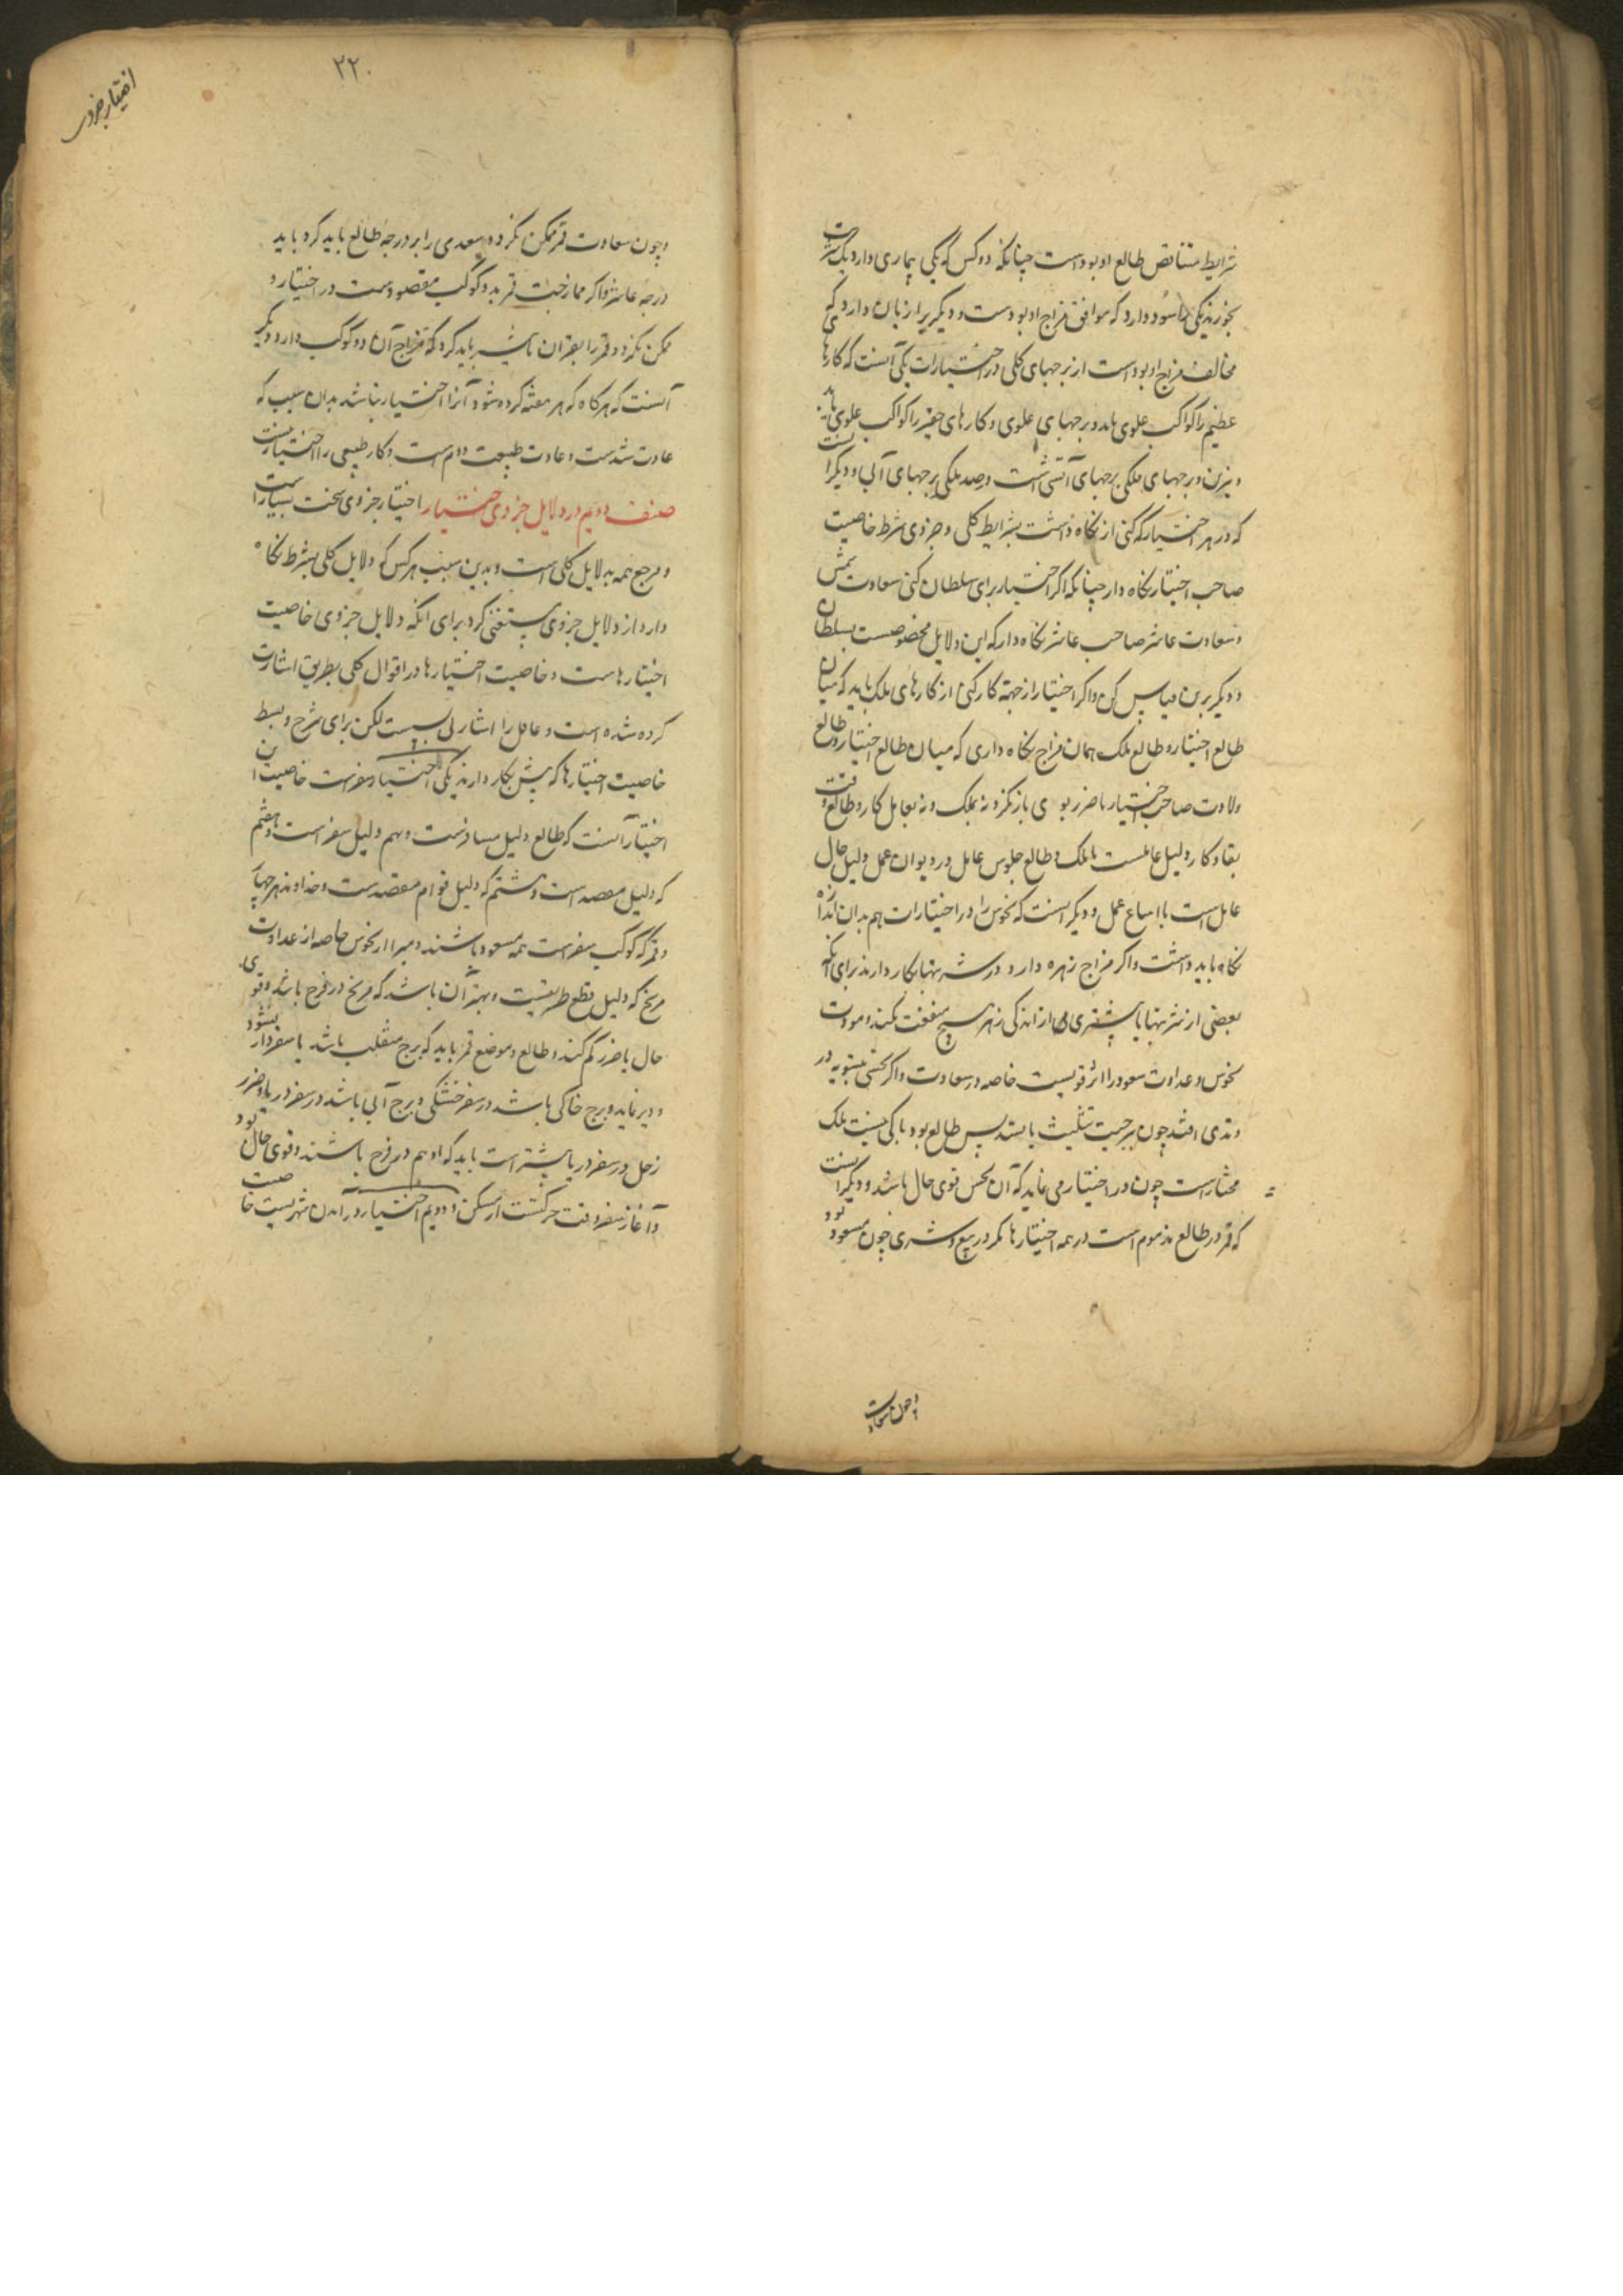 شرایط متناقص طالع او بوداست چنانکه دو کس که یکی بیماری دارد یک شربت
بخورند یکی را سود دارد که موافق مزاج او بودست و دیگریرا زیان دارد که
مخالف مزاج او بوداست از برجهای کلی در اختیارات یکی آنست که کارهای
عظیم را کواکب علوی باید و برجهای علوی و کارهای حقیر را کواکب علوی باید
و نیرین و برجهای ملکی برجهای آتشی است و ضد ملکی برجهای آبی و دیگر آنست
که در هر اختیار که کنی از نگاه داشت شرایط کلی و جزوی شرط خاصیت
صاحب اختیار نگاه دار چنانکه اگر اختیار برای سلطان کنی سعادت شمس
و سعادت عاشر صاحب عاشر نگاه دار که این دلایل مخصوصست بسلطان
و دیگر برین قیاس کن و اگر اختیار از جهة کار کنی از کارهای ملک باید که میان
طالع اختیار و طالع ملک همان مزاج نگاه داری که میان طالع اختیار و طالع
ولادت صاحب اختیار تا ضرر بوی باز نگردد نه بملک و نه بعامل کار و طالع وقت
بقاء کار دلیل عاملست با ملک و طالع جلوس عامل در دیوان عمل دلیل حال
عامل است با اتباع عمل و دیگر آنست که نحوس را در اختیارات هم بدان اندازه
نگاه باید داشت و اگر مزاج زهره دارد در شربتها بکار دارند برای آنکه
بعضی از شربتها از اندکی زهر هیچ منفعت نکند و مودت
نحوس و عداوت سعود را اثر قویست خاصه در سعادت و اگر نحسی بتسویه در
وتدی افتد چون برجیت تثلیث یا تسدیس طالع بود باکی نیست ملک
مختار است چون در اختیار می نماید که آن نحس قوی حال باشد و دیگر آنست
که قمر در طالع مذموم است در همه اختیارها مگر در بیع و شری چون مسعود بود
و چون سعادت
۲۲۰
اختیار جزوی
و چون سعادت قمر ممکن نگردد سعدی را بر درجه طالع باید کرد یا بد
درجه عاشر و اگر ممازجت قمر بدو کوکب مقصودست در اختیار و
ممکن نگردد قمر را بقران باید کرد که مزاج آن دو کوکب دارد دیگر
آنست که هرگاه که هر هفته کرده شود آنرا اختیار نباشد بدان سبب که
عادت شدست و عادت طبیعت دوم است و کار طبیعی را اختیار نیست
صنف دویم در دلایل جزوی اختیار اختیار جزوی سخت بسیار است
و مرجع همه بدلایل کلی است و بدین سبب هر کس که دلایل کلی بشرط نگاه
دارد از دلایل جزوی مستغنی گردد برای آنکه دلایل جزوی خاصیت
اختیارهاست و خاصیت اختیارها در اقوال کلی بطریق اشارت
کرده شده است و عاقل را اشارتی بس است لکن برای شرح و بسط
خاصیت اختیارها که بیش بکار دارند یکی اختیار سفرست خاصیت این
اختیار آنست که طالع دلیل مسافرست و نهم دلیل سفر است و هفتم
که دلیل مقصد است و هشتم که دلیل قوام مقصدست و خداوند هر چهار
و قمر که کوکب سفر است همه مسعود باشند و مبرا از نحوس خاصه از عداوت
مریخ که دلیل قطع طریقست و بهتر آن باشد که مریخ در فرح باشد و قوی
حال تا ضرر کم کند و طالع و موضع قمر باید که برج منقلب باشد تا سفر دراز نشود
و دیر نماید و برج خاکی باشد در سفر خشکی و برج آبی باشد در سفر دریا و ضرر
زحل در سفر دریا بیشتر است باید که او هم در فرح باشند و قوی حال بود
و آغاز سفر وقت حرکتست از مسکن و دویم اختیار در آمدن شهریست خاصیت